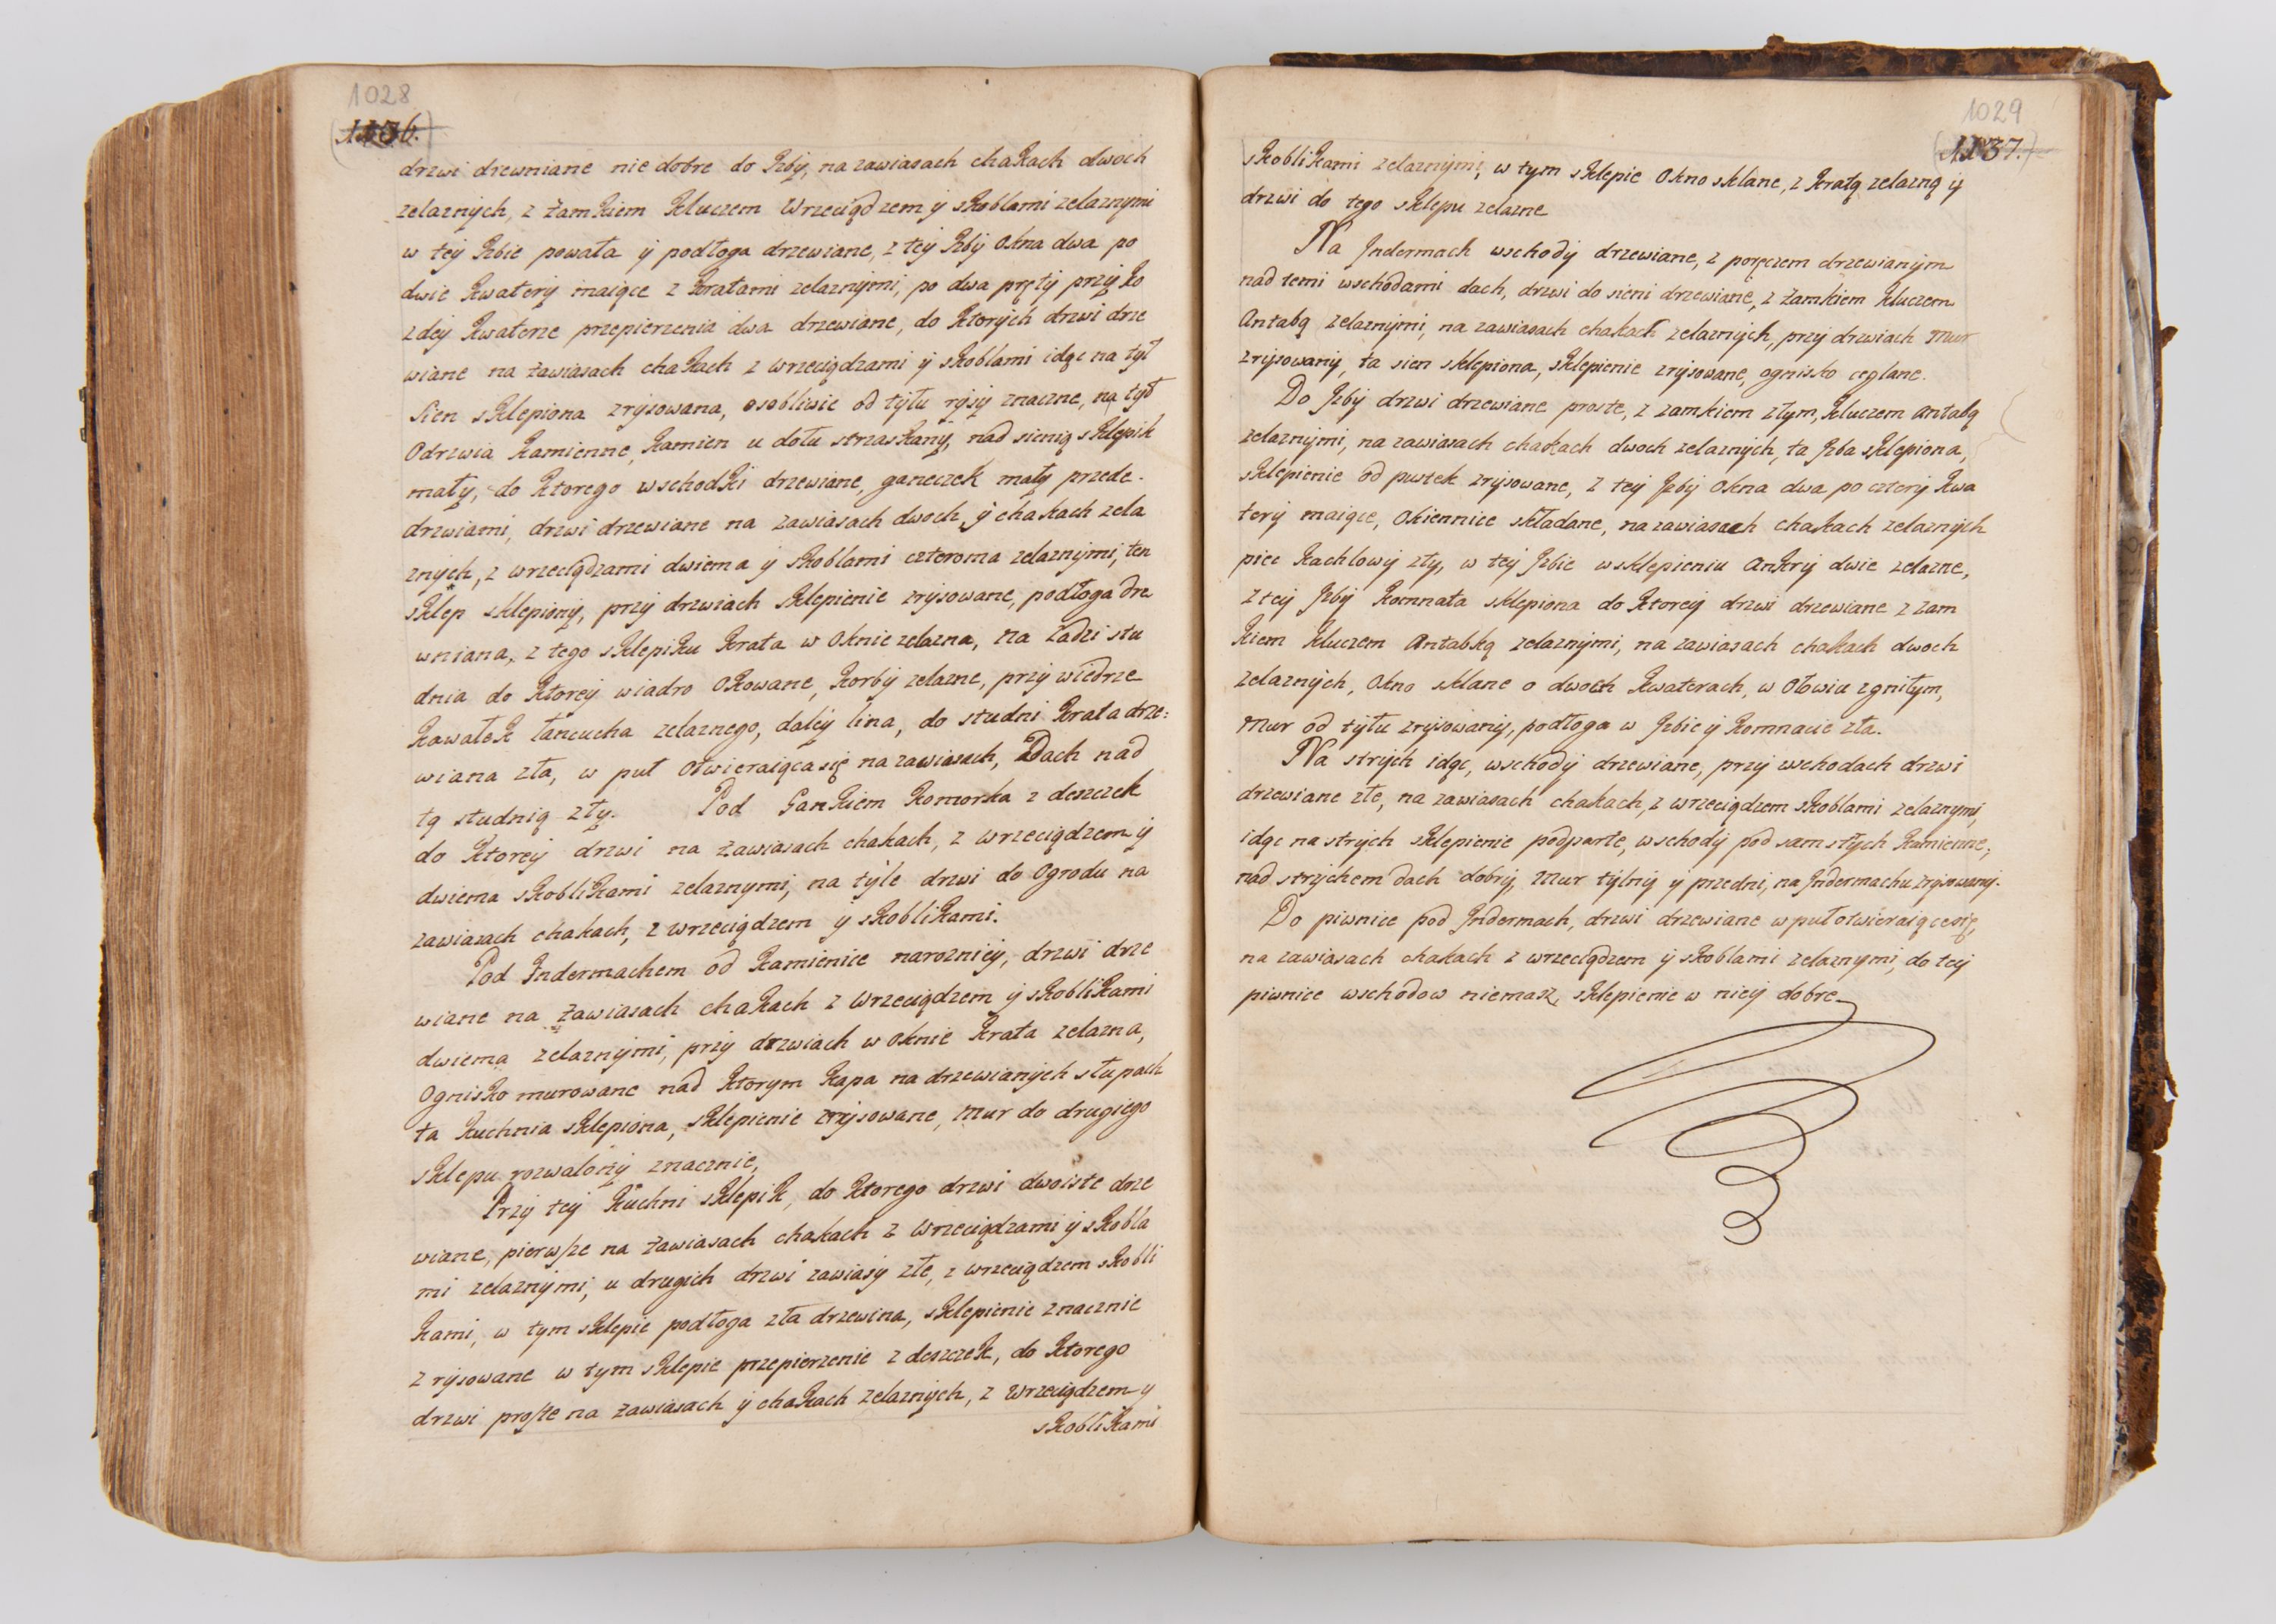 1028
1136.
drzwi drewniane nie dobre do Izby, na zawiasach chakach dwoch
zelaznych, z zamkiem kluczem wrzeciądzem y skoblami zelaznymi
w tey Izbie powała y podłoga drzewiane, z tey Izby okna dwa po
dwie kwatery maiące z kratami zelaznymi, po dwa pręty przy ko
zdey kwaterze przepierzenia dwa drzewiane, do ktorych drzwi drze
wiane na zawiasach chakach z wrzeciądzami y skoblami idąc na tył
Sien sklepiona zrysowana, osobliwie od tyłu rysy znaczne, na tył
Odrzwia kamienne, kamien u dołu strzaskany, nad sienią sklepik
mały, do ktorego wschodki drzewiane, ganeczek mały przede.
drzwiami, drzwi drzewiane na zawiasach dwoch y chakach zela
znych, z wrzeciądzami dwiema y skoblami czteroma zelaznymi, ten
sklep sklepiony, przy drzwiach sklepienie zrysowane, podłoga dre
wniana, z tego sklepiku krata w oknie zelazna, na zadzi stu
dnia do ktorey wiadro okowane, korby zelazne, przy wiedrze
kawałek łancucha zelaznego, daley lina, do studni krata drze:
wiana zła, w puł otwieraiąca się na zawiasach, Dach nad
tą studnią zły. Pod Gankiem komorka z deszczek
do ktorey drzwi na zawiasach chakach, z wrzeciądzem y
dwiema skoblikami zelaznymi, na tyle drzwi do ogrodu na
zawiasach chakach, z wrzeciądzem y skoblikami.
Pod Indermachem od kamienice narozniey, drzwi drze
wiane na zawiasach chakach z wrzeciądzem y skoblikami
dwiema zelaznymi, przy drzwiach w oknie krata zelazna,
Ognisko murowane nad ktorym kapa na drzewianych słupach
ta kuchnia sklepiona, sklepienie zrysowane, mur do drugiego
sklepu rozwalony znacznie,
Przy tey kuchni sklepik, do ktorego drzwi dwoiste drze
wiane, pierwsze na zawiasach chakach z wrzeciądzami y skobla
mi zelaznymi, u drugich drzwi zawiasy złe, z wrzeciądzem skobli
kami, w tym sklepie podłoga zła drzewina, sklepienie znacznie
zrysowane w tym sklepie przepierzenie z deszczek, do ktorego
drzwi proste na zawiasach y chakach zelaznych, z wrzeciądzem y
skoblikami
1029
1137.
skoblikami zelaznymi, w tym sklepie okno sklane, z kratą zelazną y
drzwi do tego sklepu zelazne
Na Indermach wschody drzewiane, z poręczem drzewianym
nad temi wschodami dach, drzwi do sieni drzewiane, z zamkiem kluczem
Antabą zelaznymi, na zawiasach chakach zelaznych, przy drzwiach mur
zrysowany, ta sien sklepiona, sklepienie zrysowane, ognisko ceglane.
Do Izby drzwi drzewiane proste, z zamkiem złym, kluczem antabą
zelaznymi, na zawiasach chakach dwoch zelaznych, ta Izba sklepiona,
sklepienie od pustek zrysowane, z tey Izby okna dwa po cztery kwa
tery maiące, okiennice składane, na zawiasach chakach zelaznych
piec kachlowy zły, w tey Izbie w sklepieniu ankry dwie zelazne,
z tey Izby komnata sklepiona do ktorey drzwi drzewiane z zam
kiem kluczem antabką zelaznymi, na zawiasach chakach dwoch
zelaznych, okno sklane o dwoch kwaterach, w ołowiu zgniłym,
Mur od tyłu zrysowany, podłoga w Izbie y komnacie zła.
Na strych idąc, wschody drzewiane, przy wschodach drzwi
drzewiane złe, na zawiasach chakach, z wrzeciądzem skoblami zelaznymi,
idąc na strych sklepienie podparte, wschody pod sam stych kamienne,
nad strychem dach dobry, mur tylny y przedni, na Indermachu zrysowany.
Do piwnice pod Indermach, drzwi drzewiane w puł otwieraiące się,
na zawiasach chakach z wrzeciądzem y skoblami zelaznymi, do tey
piwnice wschodow niemasz, sklepienie w niey dobre